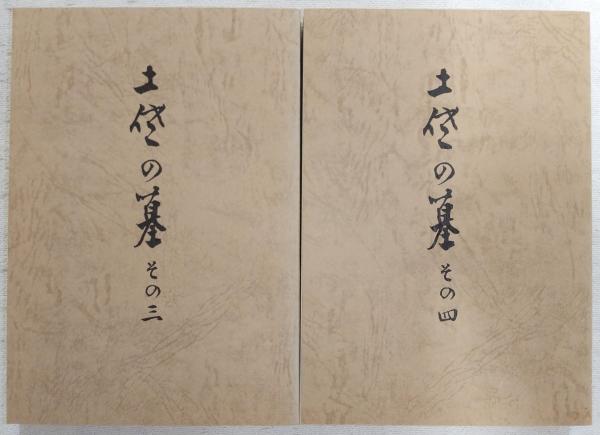 土佐の墓 その三
土佐の墓 その四